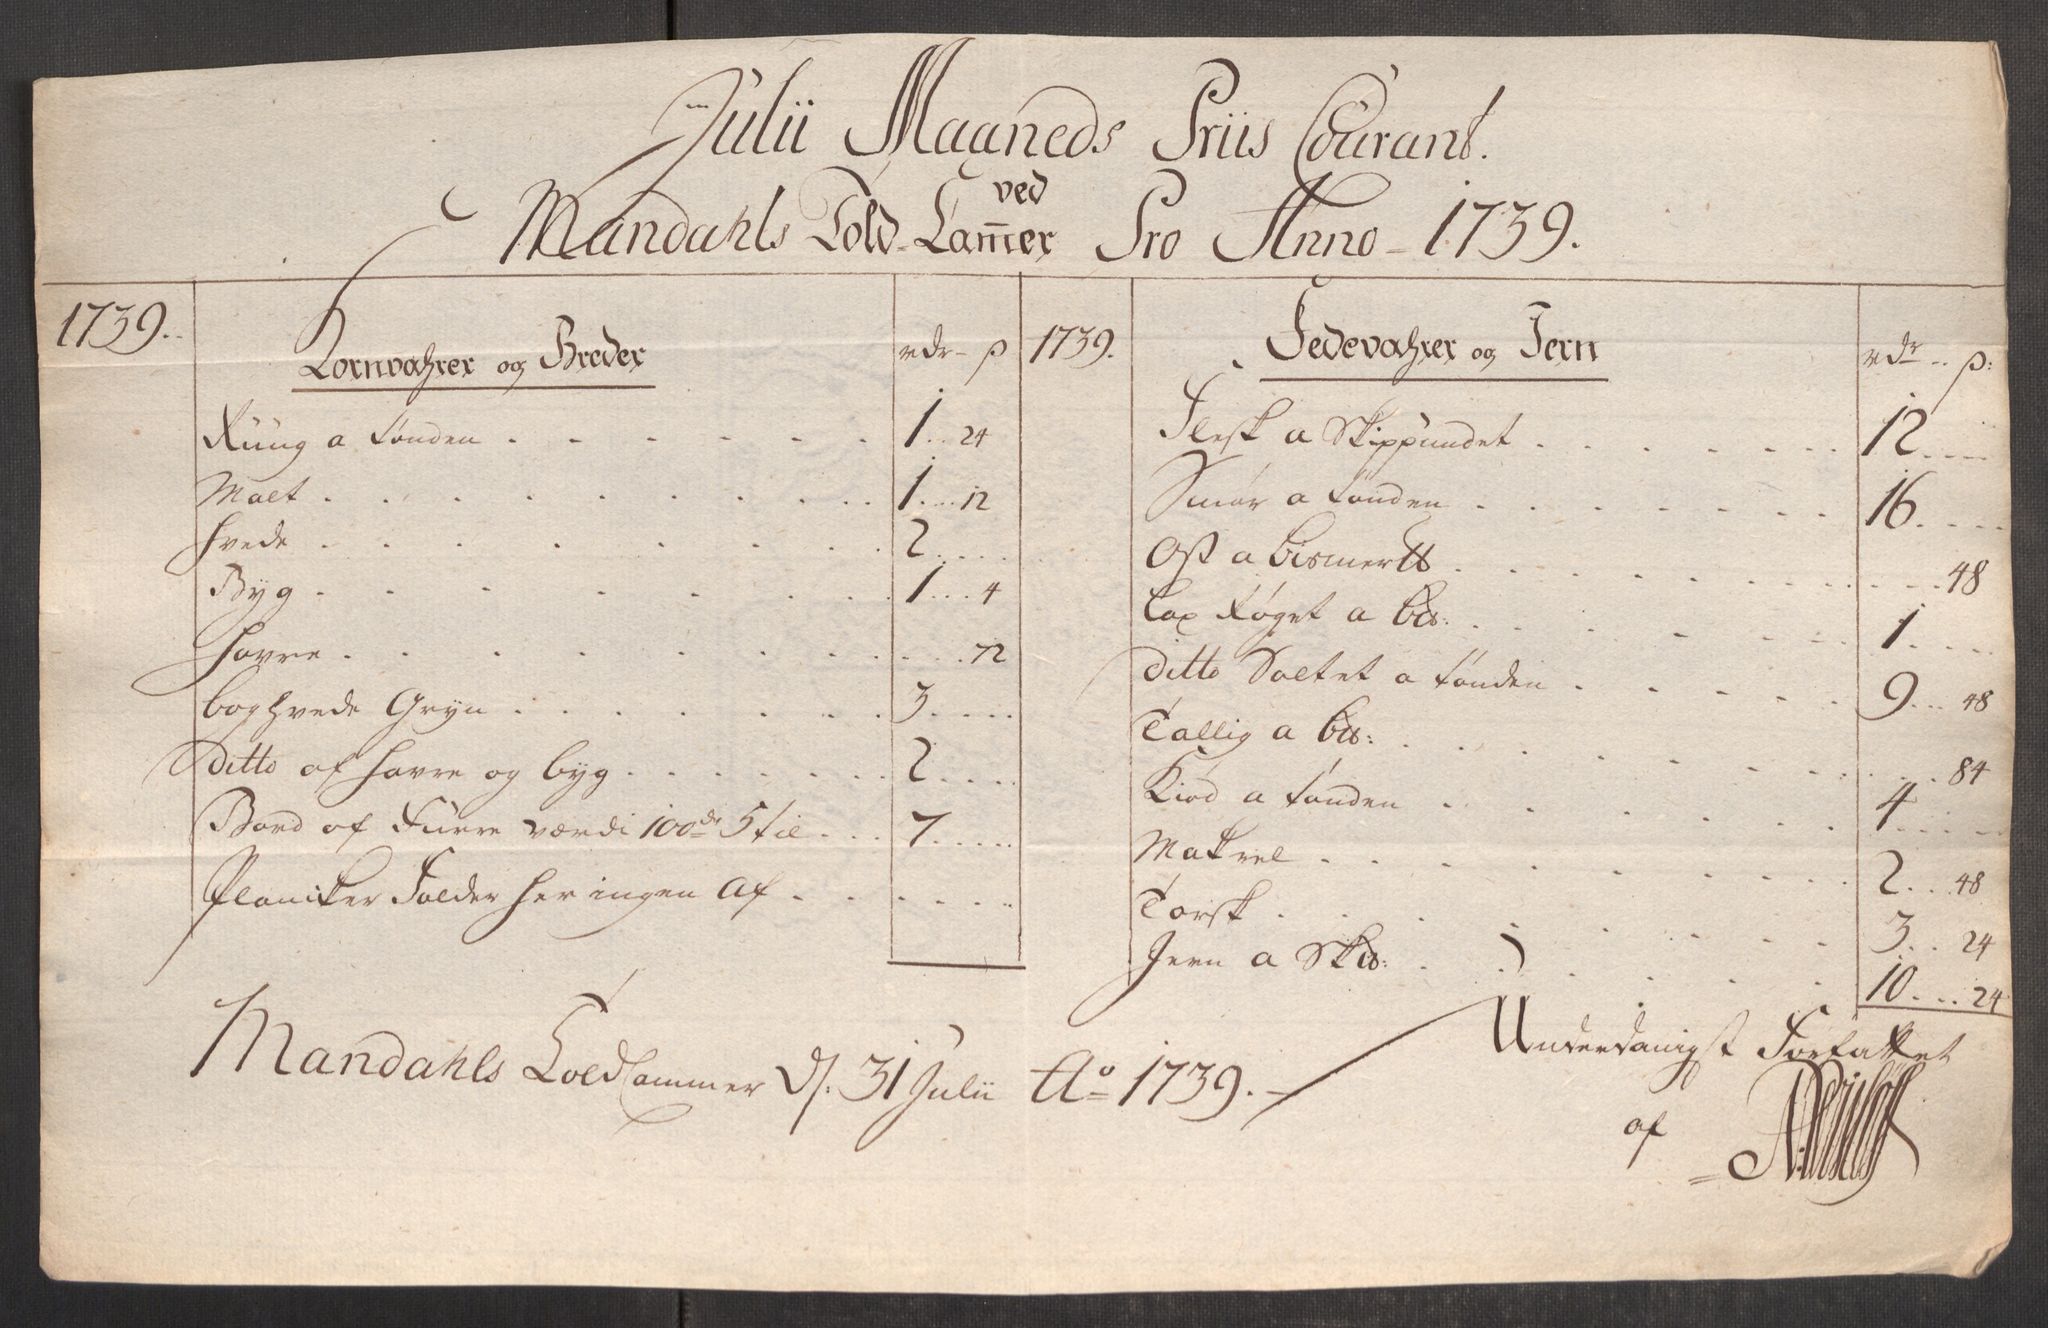 Julii Maaneds Priis Courant.
ved
Mandahls Told-Cam̅er Pro Anno - 1739.
1739.
Kornvahrer og Breder
rdr - β
Rúúg a tønden . . . . . . 1 .. 24
Malt . . . . . . . . 1 ... 12
hvede . . . . . . . 2 ....
Byg . . . . . . . 1 ... 4
Havre . . . . . . . ... 72
boghvede Gryn . . . . . . 3 ....
Ditto af Havre og byg . . . . . . 2 ....
Bord af Fúrre værdi 100de 5til . . . 7 .....
Plancker Falder her ingen Af . . . . . .
1739.
Fedevahrer og Jern
rdr .. β:
Flesk a Skippúndet . . . . . . 12 ....
Smør a tønden . . . . . . . 16 ....
Ost a bismer ℔ . . . . . . . ... 48
Lax Røget a b℔: . . . . . . 1 ....
Ditto Saltet a tønden . . . . . 9 ... 48
Tallig a b℔: . . . . . . . ... 84
Kiød a tønden . . . . . . 4 .....
Makrel . . . . . . . 2 ... 48
Torsk . . . . . . . 3 .. 24
Jern a Sk℔: . . . . . . 10 ... 24
Mandahls ToldCammer d: 31 Julii Ao 1739. -
Underdanigst Forfattet
af